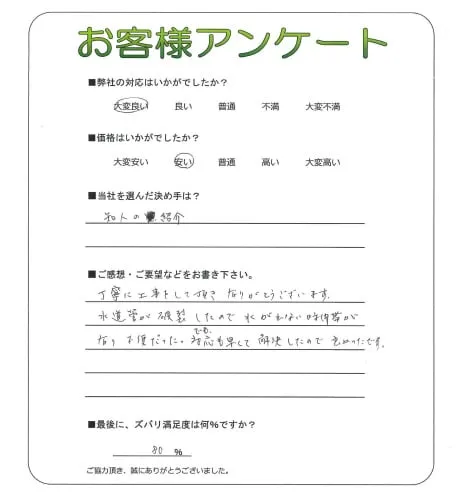 お客様アンケート
■弊社の対応はいかがでしたか？
大変良い 良い 普通 不満 大変不満
■価格はいかがでしたか？
大変安い 安い 普通 高い 大変高い
■当社を選んだ決め手は？
知人の 紹介
■ご感想・ご要望などをお書き下さい。
丁寧に工事をして頂き ありがとうございます。
水道管が破裂したので 水が出ない時間帯が
あり 不便だった。でも、対応も早くて 解決したので です。
■最後に、ズバリ満足度は何％ですか？
80 ％
ご協力頂き、誠にありがとうございました。